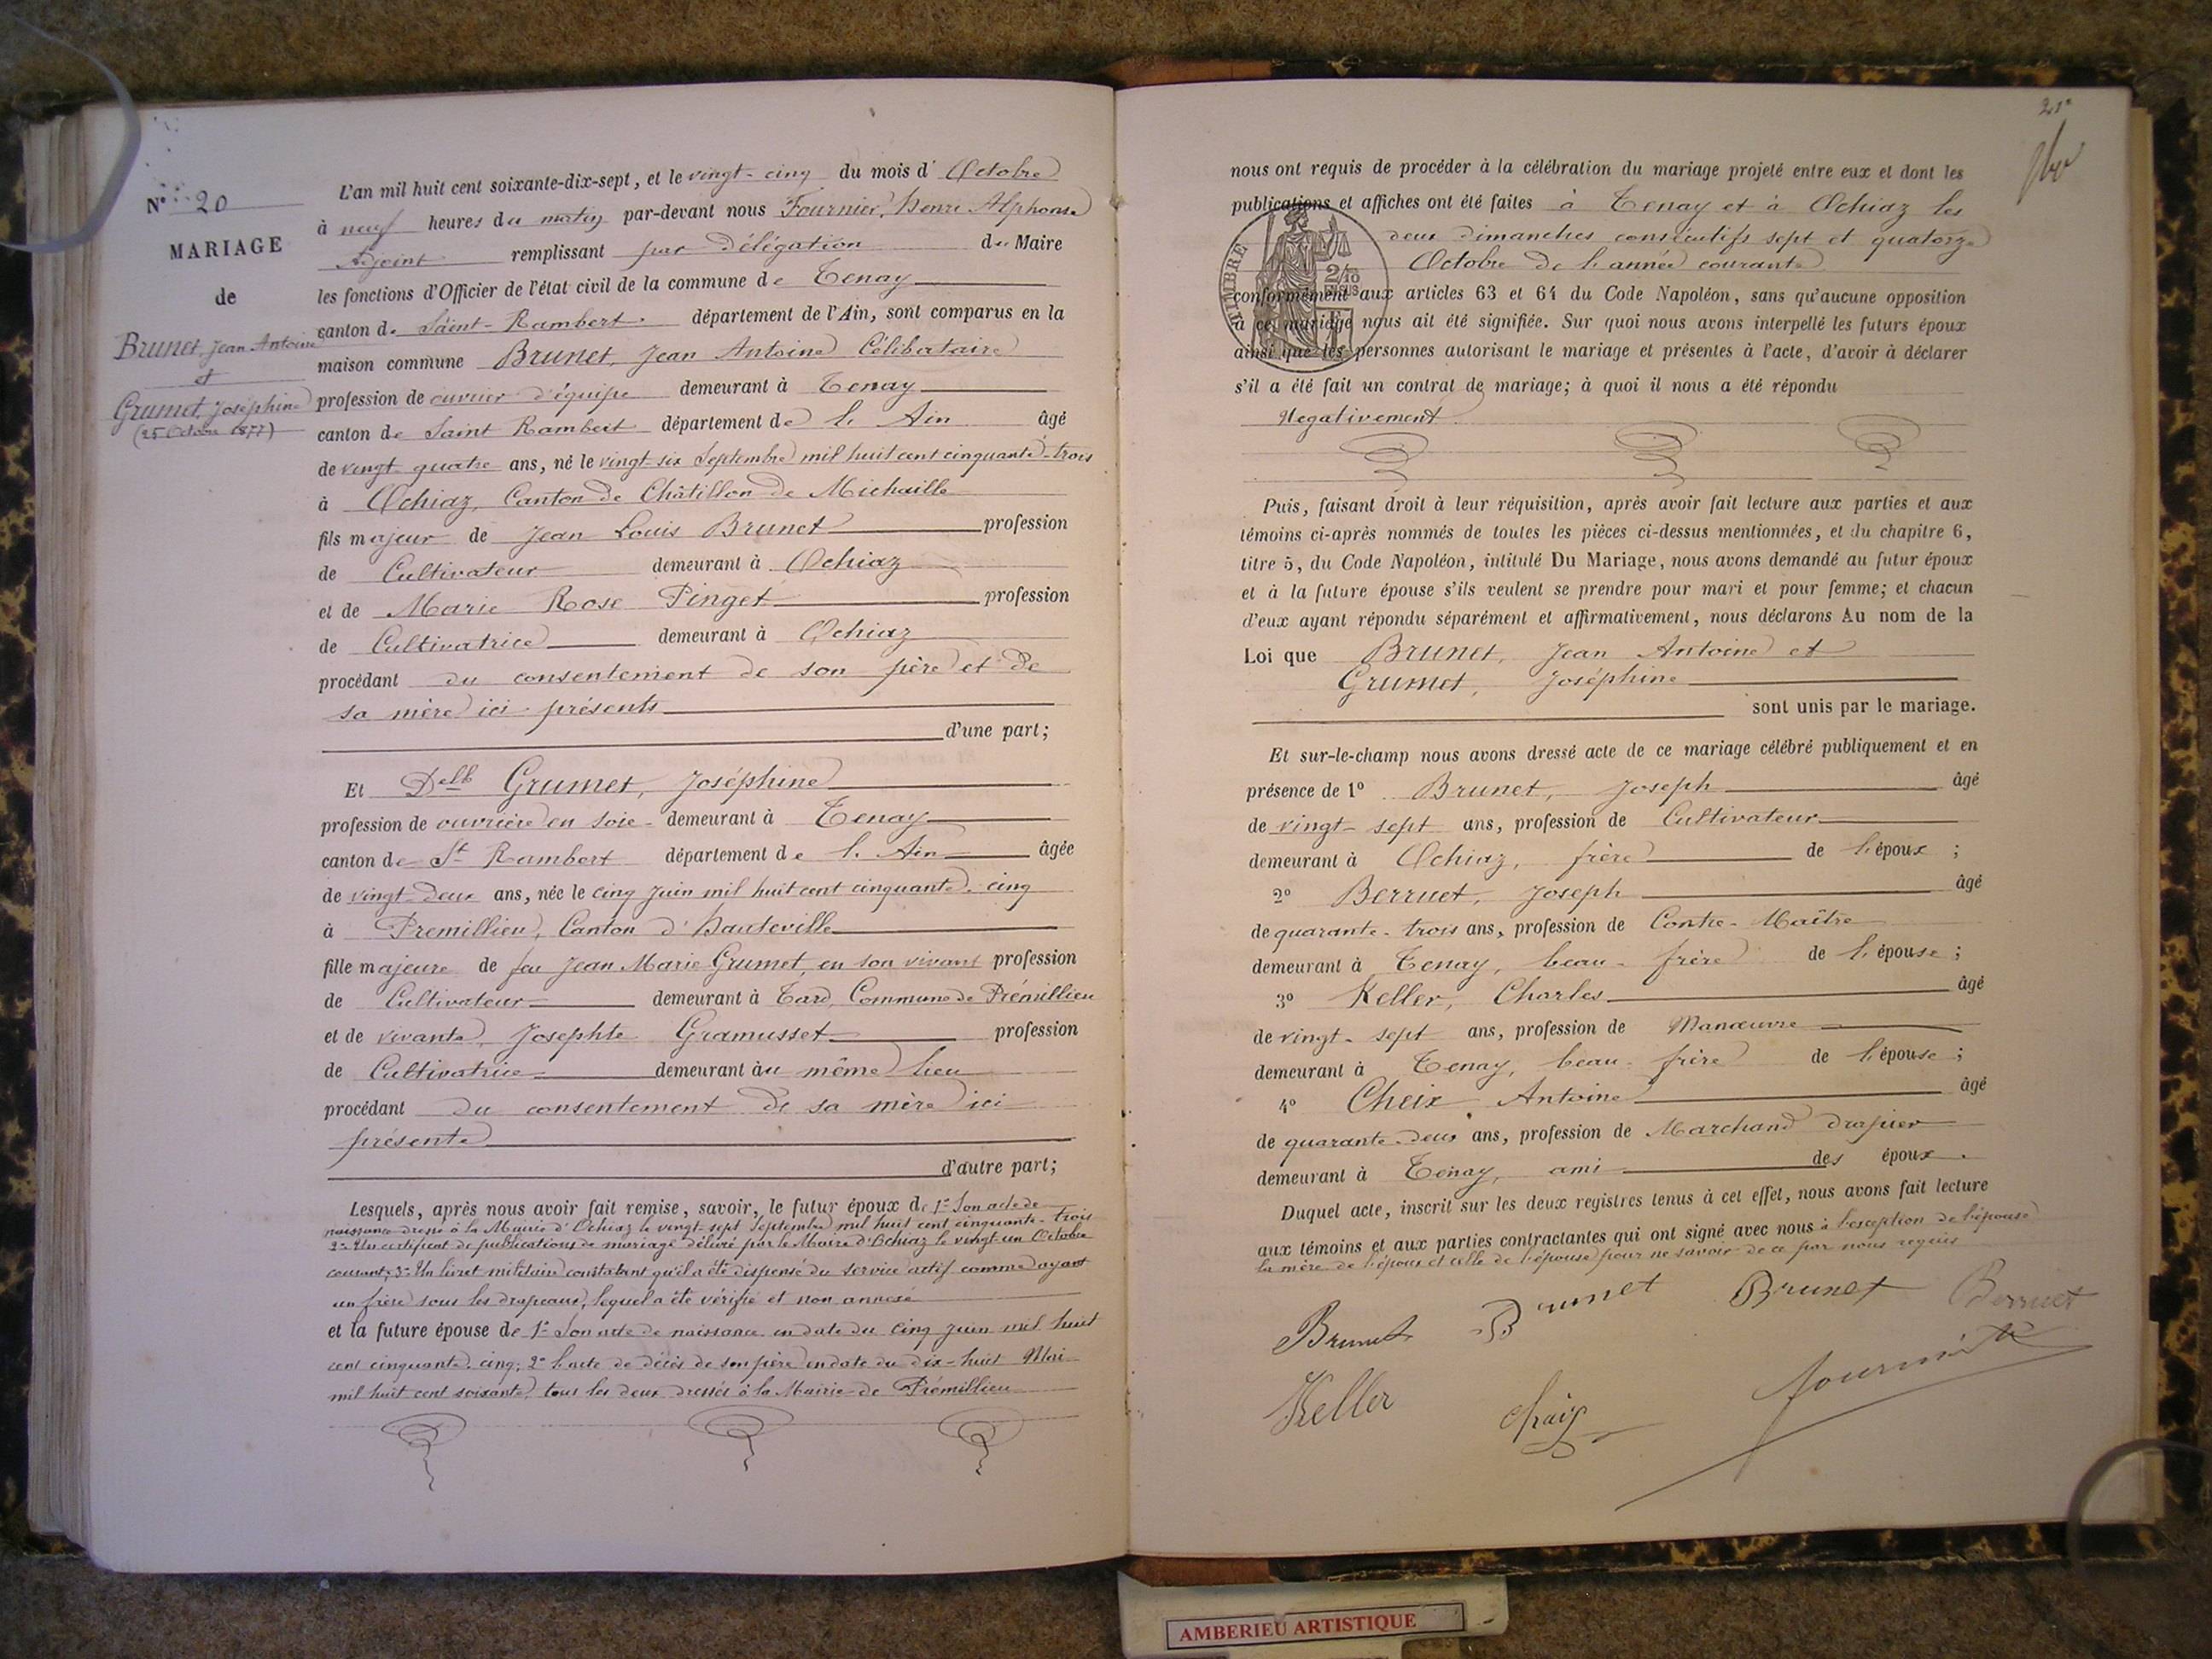 N° 20
MARIAGE
de
Brunet, Jean Antoine
et
Grumet, Joséphine
(25 Octobre 1877)
L'an mil huit cent soixante-dix-sept, et le vingt-cinq du mois d' Octobre
à neuf heures du matin par-devant nous Fournier, Henri Alphonse
Adjoint remplissant par Délégation du Maire
les fonctions d'Officier de l'état civil de la commune de Tenay
canton de Saint-Rambert département de l'Ain, sont comparus en la
maison commune Brunet, Jean Antoine Célibataire
profession de ouvrier d'équipe demeurant à Tenay
canton de Saint Rambert département de l'Ain âgé
de vingt quatre ans, né le vingt-six Septembre mil huit cent cinquante-trois
à Ochiaz, Canton de Châtillon de Michaille
fils majeur de Jean Louis Brunet profession
de Cultivateur demeurant à Ochiaz
et de Marie Rose Pinget profession
de Cultivatrice demeurant à Ochiaz
procédant du consentement de son père et de
sa mère ici présents
d'une part;
Et Delle Grumet, Joséphine
profession de ouvrière en soie demeurant à Tenay
canton de St Rambert département de l'Ain âgée
de vingt-deux ans, née le cinq Juin mil huit cent cinquante-cinq
à Premillieu, Canton d'Hauteville
fille majeure de feu Jean Marie Grumet, en son vivant profession
de Cultivateur demeurant à Tard, Commune de Prémillieu
et de vivante, Josephte Gramusset profession
de Cultivatrice demeurant au même lieu
procédant du consentement de sa mère ici
présente
d'autre part;
Lesquels, après nous avoir fait remise, savoir, le futur époux de 1° Son acte de
naissance dressé à la Mairie d'Ochiaz le vingt-sept Septembre mil huit cent cinquante-trois
2° Un certificat de publications de mariage délivré par le Maire d'Ochiaz le vingt-un Octobre
courant; 3° Un livret militaire constatant qu'il a été dispensé du service actif comme ayant
un frère sous les drapeaux, lequel a été vérifié et non annexé
et la future épouse de 1° Son acte de naissance en date du cinq Juin mil huit
cent cinquante-cinq; 2° l'acte de décès de son père en date du dix-huit Mai
mil huit cent soixante, tous les deux dressés à la Mairie de Prémillieu
21e
nous ont requis de procéder à la célébration du mariage projeté entre eux et dont les
publications et affiches ont été faites à Tenay et à Ochiaz les
deux Dimanches consécutifs sept et quatorze
Octobre de l'année courante
TIMBRE
2/10
conformément aux articles 63 et 64 du Code Napoléon, sans qu'aucune opposition
à ce mariage nous ait été signifiée. Sur quoi nous avons interpellé les futurs époux
ainsi que les personnes autorisant le mariage et présentes à l'acte, d'avoir à déclarer
s'il a été fait un contrat de mariage; à quoi il nous a été répondu
Negativement
Puis, faisant droit à leur réquisition, après avoir fait lecture aux parties et aux
témoins ci-après nommés de toutes les pièces ci-dessus mentionnées, et du chapitre 6,
titre 5, du Code Napoléon, intitulé Du Mariage, nous avons demandé au futur époux
et à la future épouse s'ils veulent se prendre pour mari et pour femme; et chacun
d'eux ayant répondu séparément et affirmativement, nous déclarons Au nom de la
Loi que Brunet, Jean Antoine et
Grumet, Joséphine
sont unis par le mariage.
Et sur-le-champ nous avons dressé acte de ce mariage célébré publiquement et en
présence de 1° Brunet, Joseph âgé
de vingt-sept ans, profession de Cultivateur
demeurant à Ochiaz, frère de l'époux ;
2° Berruet, Joseph âgé
de quarante-trois ans, profession de Contre-Maître
demeurant à Tenay, beau-frère de l'épouse ;
3° Keller, Charles âgé
de vingt-sept ans, profession de Manœuvre
demeurant à Tenay, beau-frère de l'épouse ;
4° Cheix Antoine âgé
de quarante-deux ans, profession de Marchand drapier
demeurant à Tenay, ami des époux.
Duquel acte, inscrit sur les deux registres tenus à cet effet, nous avons fait lecture
aux témoins et aux parties contractantes qui ont signé avec nous à l'exception de l'épouse
la mère de l'époux et celle de l'épouse pour ne savoir de ce par nous requis
Brunet Brunet Brunet Berruet
Keller Chaix Fournier
AMBERIEU ARTISTIQUE